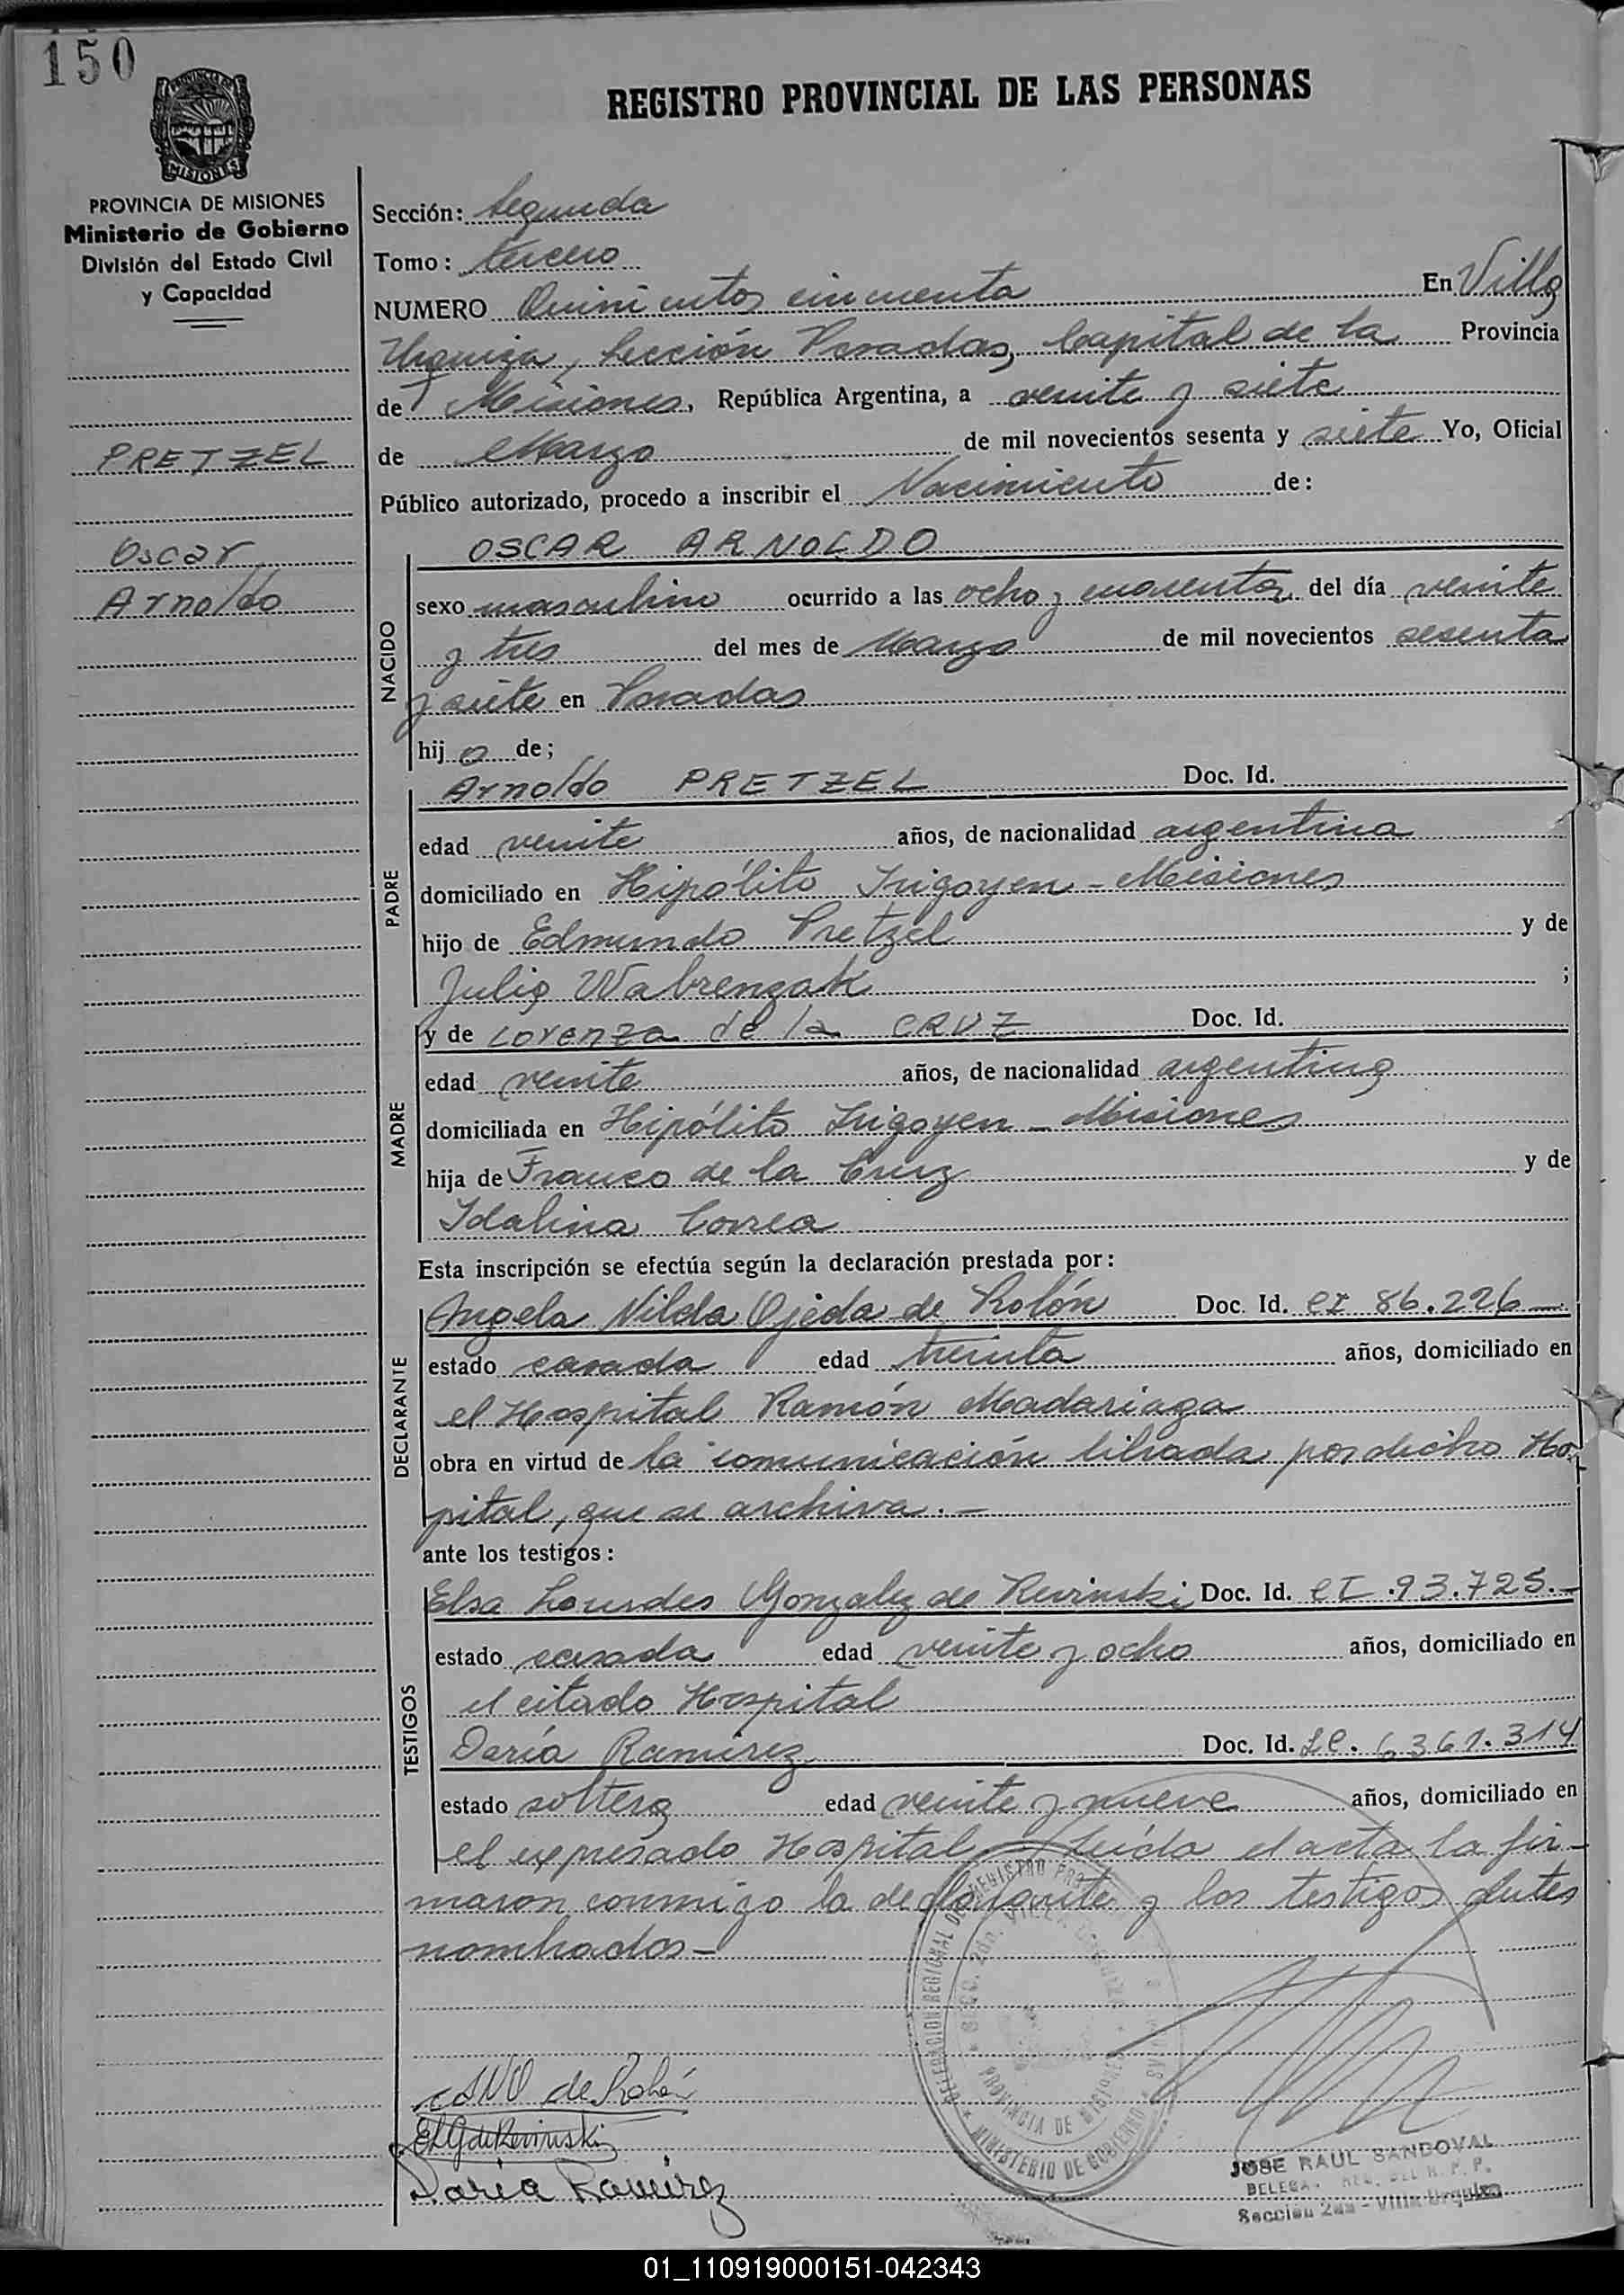 150
REGISTRO PROVINCIAL DE LAS PERSONAS
PROVINCIA DE MISIONES
Ministerio de Gobierno
División del Estado Civil
y Capacidad
Sección: Segunda
Tomo: tercero
NUMERO Quinientos cincuenta En Villa
Urquiza, Sección Posadas, Capital de la Provincia
de Misiones, República Argentina, a veinte y siete
de Marzo de mil novecientos sesenta y siete Yo, Oficial
PRETZEL
Público autorizado, procedo a inscribir el Nacimiento de:
Oscar
Arnoldo
NACIDO
OSCAR ARNOLDO
sexo masculino ocurrido a las ocho y cuarenta del día veinte
y tres del mes de Marzo de mil novecientos sesenta
y siete en Posadas
hijo de;
PADRE
Arnoldo PRETZEL Doc. Id.
edad veinte años, de nacionalidad argentina
domiciliado en Hipólito Irigoyen - Misiones
hijo de Edmundo Pretzel y de
Julia Wabrenzak ;
MADRE
y de Lorenza de la CRUZ Doc. Id.
edad veinte años, de nacionalidad argentina
domiciliada en Hipólito Irigoyen - Misiones
hija de Franco de la Cruz y de
Idalina Correa
Esta inscripción se efectúa según la declaración prestada por:
DECLARANTE
Angela Nilda Ojeda de Rolón Doc. Id. CI 86.226
estado casada edad treinta años, domiciliado en
el Hospital Ramón Madariaga
obra en virtud de la comunicación librada por dicho Hos
pital, que se archiva.-
ante los testigos:
TESTIGOS
Elsa Lourdes Gonzalez de Revinski Doc. Id. CI 93.725.-
estado casada edad veinte y ocho años, domiciliado en
el citado Hospital
Daría Ramirez Doc. Id. LC. 6361.314
estado soltera edad veinte y nueve años, domiciliado en
el expresado Hospital. Leída el acta la fir-
maron conmigo la declarante y los testigos antes
nombrados-
DELEGACION REGIONAL DEL REGISTRO PRO
MINISTERIO DE GOBIERNO
PROVINCIA DE MISIONES
de Rolón
ELG de Revinski
Daria Ramirez
JOSE RAUL SANDOVAL
Sección 2da - Villa Urquiza
01_110919000151-042343